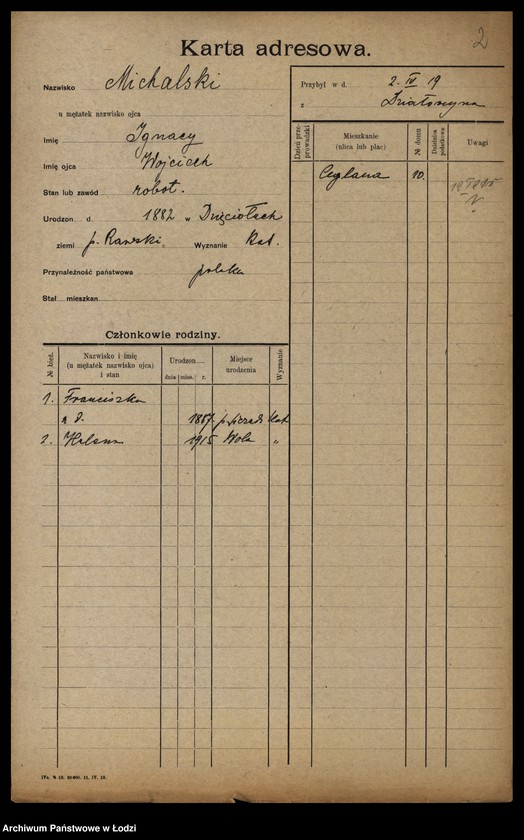 2
Karta adresowa.
Nazwisko Michalski
u mężatek nazwisko ojca
Imię Ignacy
Imię ojca Wojciech
Stan lub zawód robot.
Urodzon d. 1882 w
ziemi p. Rawski. Wyznanie Kat.
Przynależność państwowa polska
Stał mieszkan
Przybył w d. 2. IV 19
z Działoszyna
Dzień przeprowadzki
Mieszkanie (ulica lub plac)
№ domu
Dzielnica podatkowa
Uwagi
Ceglana 10.
Członkowie rodziny.
№ bież.
Nazwisko i imię
(u mężatek nazwisko ojca)
i stan
Urodzon
dnia mies. r.
Miejsce urodzenia
Wyznanie
1. Franciszka
z d. 1887. Kat
2. Helena 1915 Wola "
11. IV. 18.
Archiwum Państwowe w Łodzi